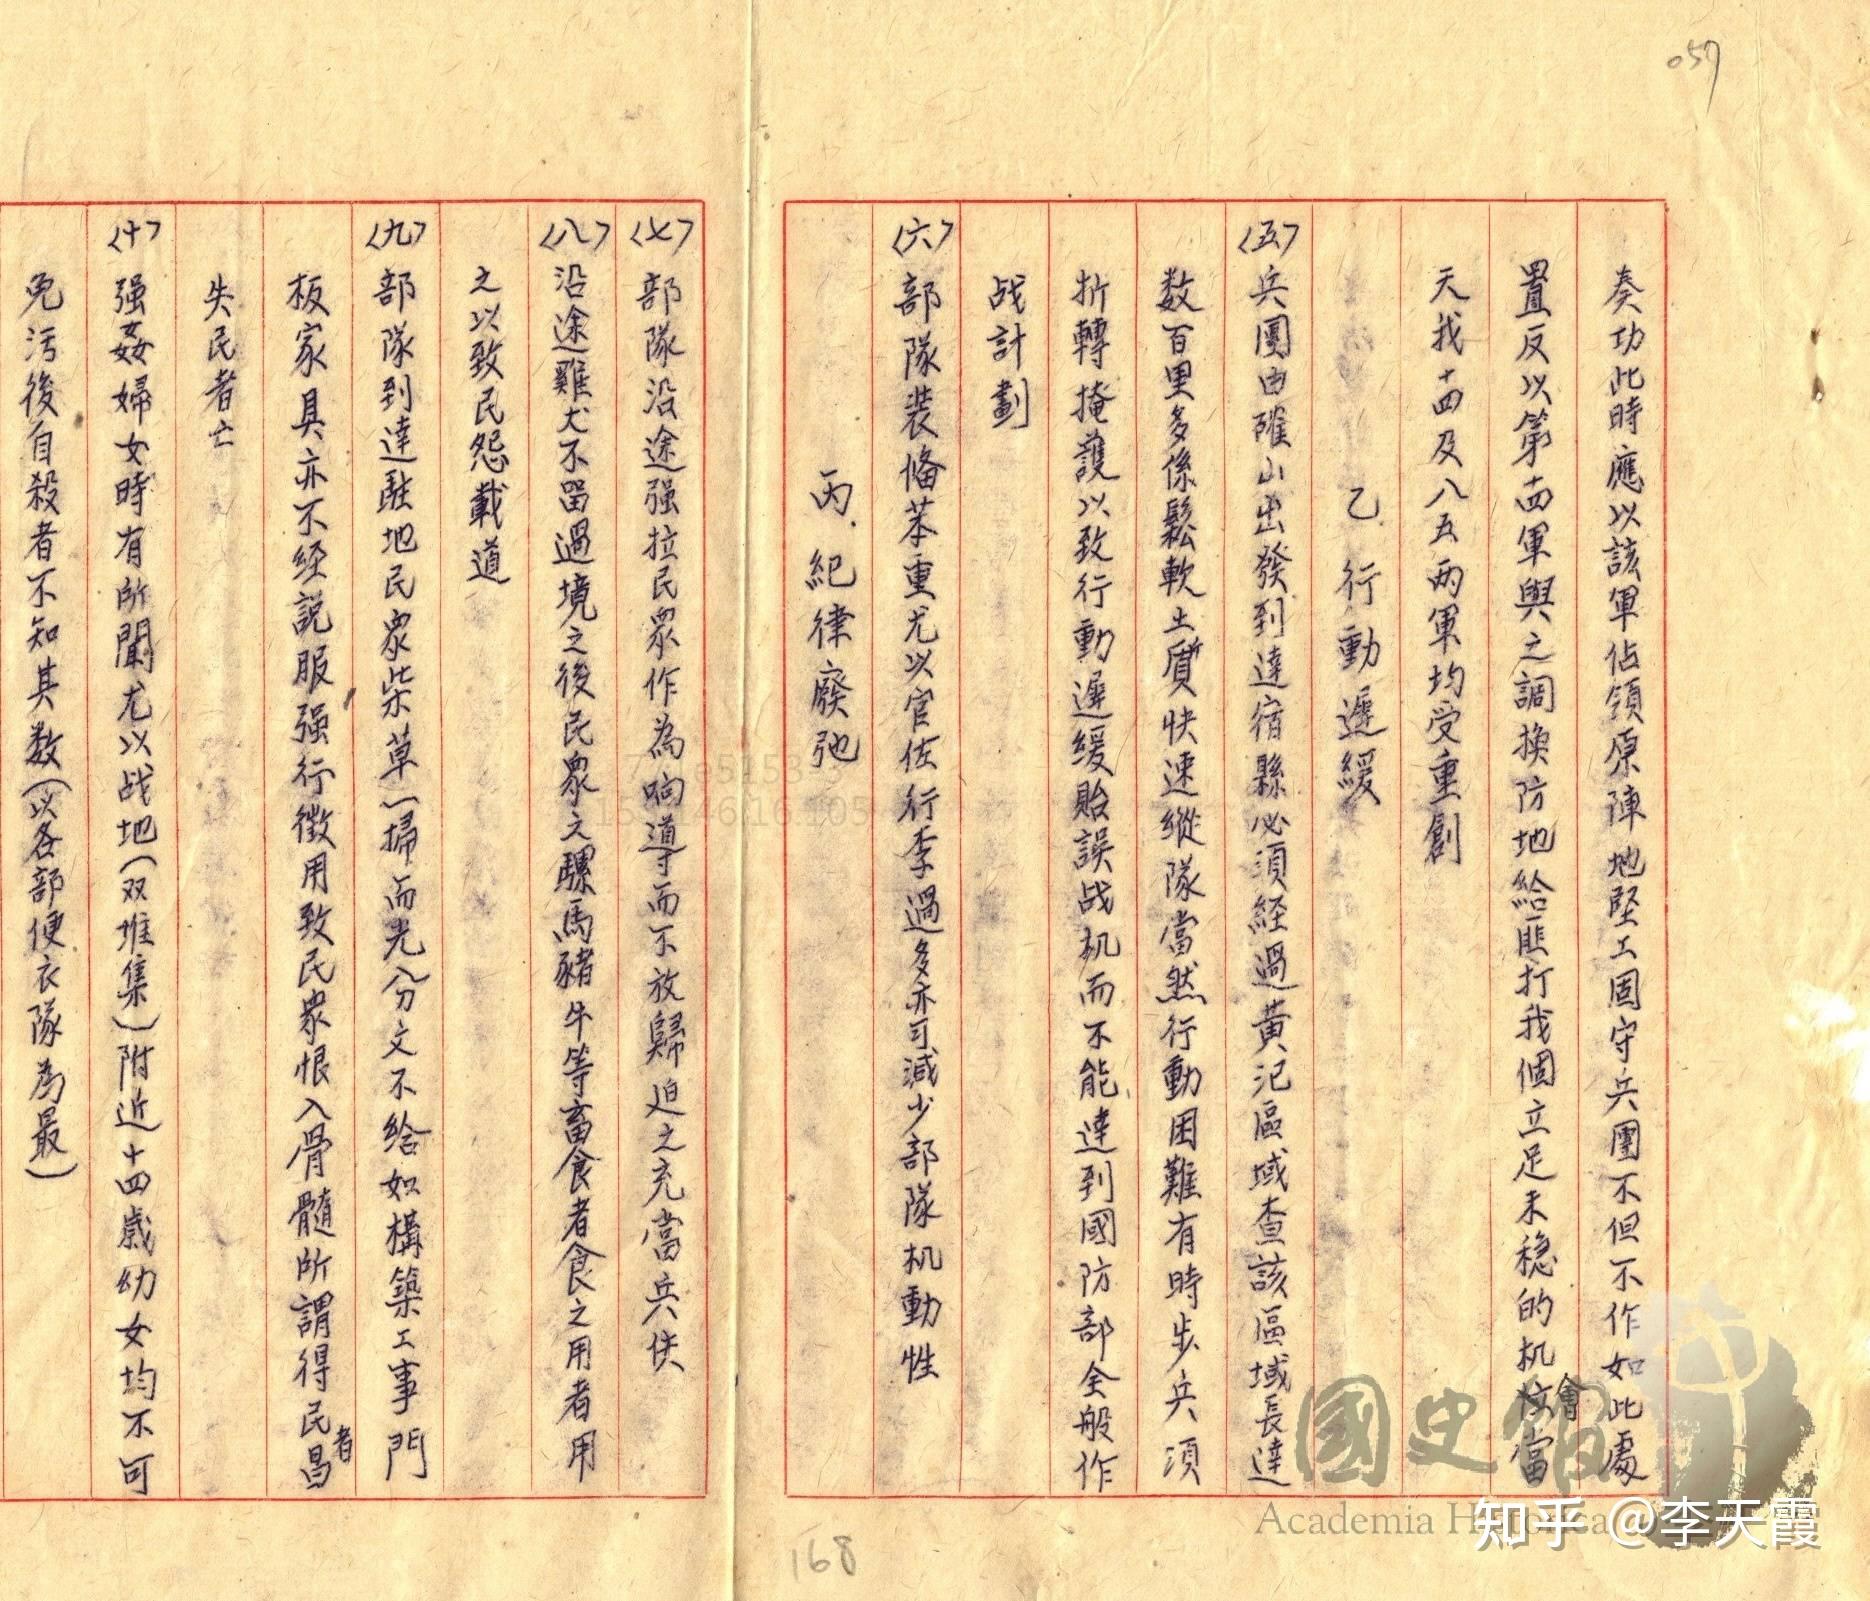 057
奏功此時應以該軍佔領原陣地堅工固守兵團不但不作如此處
置反以第十四軍與之調換防地給匪打我個立足未穩的机會當
天我十四及八五兩軍均受重創
乙.行動遲緩
〈五〉兵團由確山出發到達宿縣必須経過黃汜區域查該區域長達
数百里多係鬆軟土質快速縱隊當然行動困難有時步兵須
折轉掩護以致行動遲緩貽誤战机而不能達到國防部全般作
战計劃
〈六〉部隊裝俻苯重尤以官佐行李過多亦可減少部隊机動性
丙.紀律廢弛
〈七〉部隊沿途强拉民衆作為响導而不放歸迫之充當兵伕
〈八〉沿途雞犬不留過境之後民衆之騾馬豬牛等畜食者食之用者用
之以致民怨載道
〈九〉部隊到達駐地民衆柴草一掃而光分文不給如構築工事門
板家具亦不経説服强行徵用致民衆恨入骨髓所謂得民者昌
失民者亡
〈十〉强姦婦女時有所聞尤以战地(双堆集)附近十四歲幼女均不可
免污後自殺者不知其数(以各部便衣隊為最)
168
國史館
Academia Historica
知乎 @李天霞